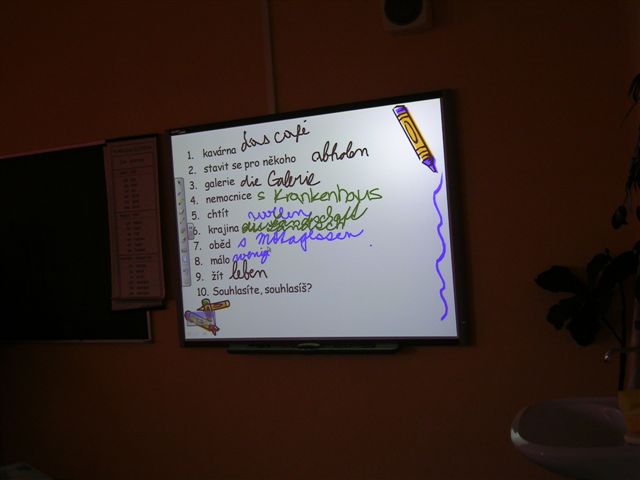 1. kavárna das café
2. stavit se pro někoho abholen
3. galerie die Galerie
4. nemocnice s Krankenhaus
5. chtít wollen
6. krajina die Landschaft
7. oběd s Mittagessen
8. málo wenig
9. žít leben
10. Souhlasíte, souhlasíš?